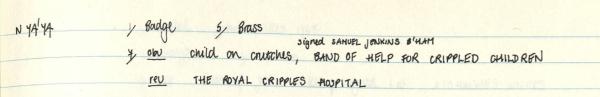 N YA'YA 1/ Badge 5/ Brass
signed SAMUEL JENKINS B'HAM
7/ obv child on crutches, BAND OF HELP FOR CRIPPLED CHILDREN
rev THE ROYAL CRIPPLES HOSPITAL